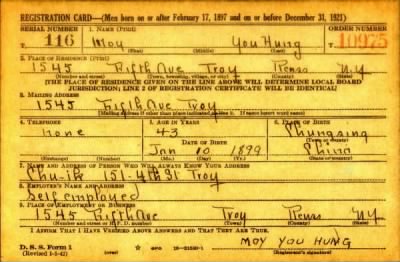 REGISTRATION CARD—(Men born on or after February 17, 1897 and on or before December 31, 1921)
SERIAL NUMBER 1. NAME (Print) ORDER NUMBER
T 116 Moy You Hung 10975
(First) (Middle) (Last)
2. PLACE OF RESIDENCE (Print)
1545 Fifth Ave Troy Renss NY
(Number and street) (Town, township, village, or city) (County) (State)
[THE PLACE OF RESIDENCE GIVEN ON THE LINE ABOVE WILL DETERMINE LOCAL BOARD
JURISDICTION; LINE 2 OF REGISTRATION CERTIFICATE WILL BE IDENTICAL]
3. MAILING ADDRESS
1545 Fifth Ave Troy
[Mailing address if other than place indicated on line 2. If same insert word same]
4. TELEPHONE 5. AGE IN YEARS 6. PLACE OF BIRTH
none 43
DATE OF BIRTH (Town or county)
Jan 10 1899 China
(Exchange) (Number) (Mo.) (Day) (Yr.) (State or country)
7. NAME AND ADDRESS OF PERSON WHO WILL ALWAYS KNOW YOUR ADDRESS
Chu-ik 151-4th St Troy
8. EMPLOYER'S NAME AND ADDRESS
Self employed
9. PLACE OF EMPLOYMENT OR BUSINESS
1545 Fifth Ave Troy Renss NY
(Number and street or R. F. D. number) (Town) (County) (State)
I AFFIRM THAT I HAVE VERIFIED ABOVE ANSWERS AND THAT THEY ARE TRUE.
MOY YOU HUNG
D. S. S. Form 1
(Revised 1-5-42) (over) GPO (Registrant's signature)